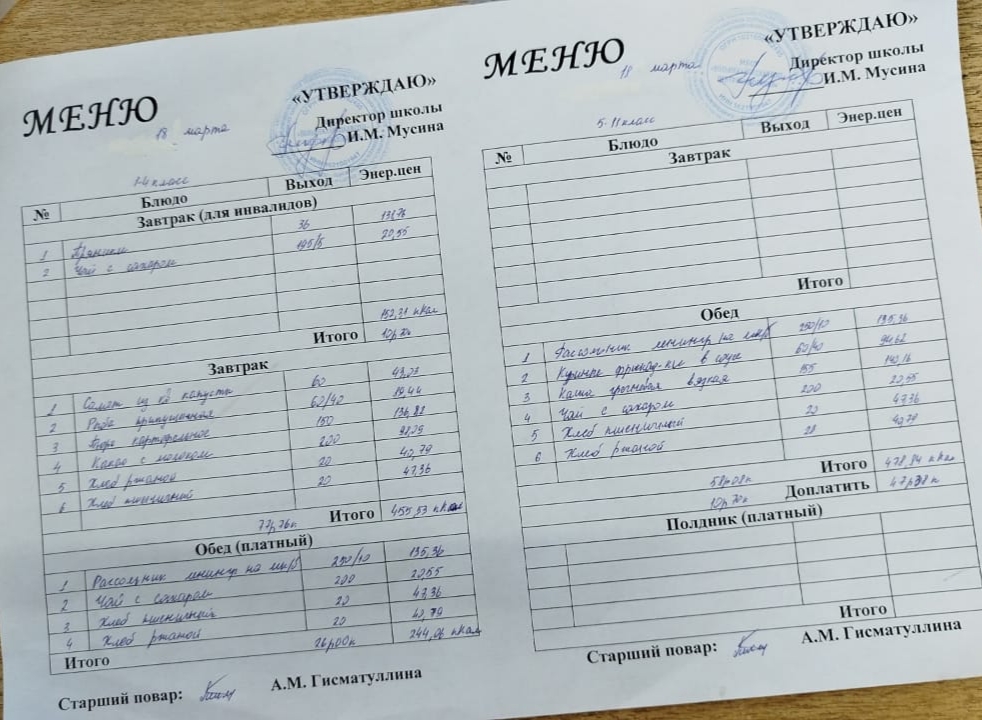 МЕНЮ
«УТВЕРЖДАЮ»
Директор школы
И.М. Мусина
18 марта
1-4 класс
№ Блюдо Выход Энер.цен
Завтрак (для инвалидов)
1 Пряники 36 131,76
2 Чай с сахаром 195/5 20,55
152,31 ккал
Итого 10р70к
Завтрак
1 Салат из св капусты 60 43,03
2 Рыба припущенная 60/40 19,44
3 Пюре картофельное 150 136,82
4 Какао с молоком 200 92,09
5 Хлеб ржаной 20 40,79
6 Хлеб пшеничный 20 47,36
77р76к Итого 455,53 ккал
Обед (платный)
1 Рассольник ленингр на мк/б 250/10 135,36
2 Чай с сахаром 200 20,55
3 Хлеб пшеничный 20 47,36
4 Хлеб ржаной 20 40,79
Итого 26р00к 244,06 ккал
Старший повар: А.М. Гисматуллина
МЕНЮ
«УТВЕРЖДАЮ»
Директор школы
И.М. Мусина
18 марта
5-11 класс
№ Блюдо Выход Энер.цен
Завтрак
Итого
Обед
1 Рассольник ленингр на мк/б 250/10 135,36
2 Куриные фрикад-ки в соусе 60/40 94,62
3 Каша гречневая вязкая 155 140,16
4 Чай с сахаром 200 20,55
5 Хлеб пшеничный 20 47,36
6 Хлеб ржаной 20 40,79
Итого 478,84 ккал
58р08к
10р70к Доплатить 47р38к
Полдник (платный)
Итого
Старший повар: А.М. Гисматуллина